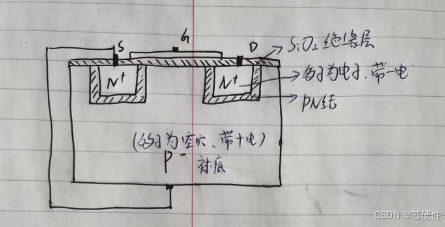 S G D
SiO₂绝缘层
N⁺ N⁺
多子为电子、带一电
PN结
(多子为空穴、带十电)
P⁻
衬底
CSDN @芯硬件